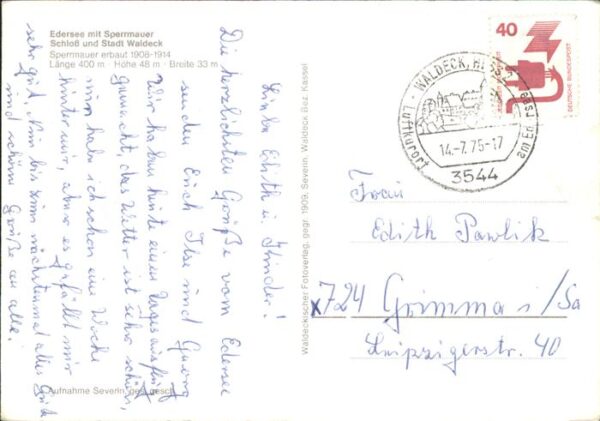 Edersee mit Sperrmauer
Schloß und Stadt Waldeck
Sperrmauer erbaut 1908-1914
Länge 400 m · Höhe 48 m · Breite 33 m
Liebe Edith u. Kinder!
Die herzlichsten Grüße vom Edersee
senden Euch Ilse und Georg
Wir haben heute einen Tagesausflug
gemacht, das Wetter ist sehr schön,
nun habe ich schon eine Woche
hinter mir, aber es gefällt mir
sehr gut. Nun bis zum nächstenmal alles Gute
und schöne Grüße an alle.
Aufnahme Severin, ges. gesch.
Waldeckischer Fotoverlag, gegr. 1909, Severin, Waldeck Bez. Kassel
40
DEUTSCHE BUNDESPOST
WALDECK, HESS 2
14.-7.75-17
3544
Luftkurort
am Edersee
Frau
Edith Pawlik
x724 Grimma i/Sa
Leipzigerstr. 40